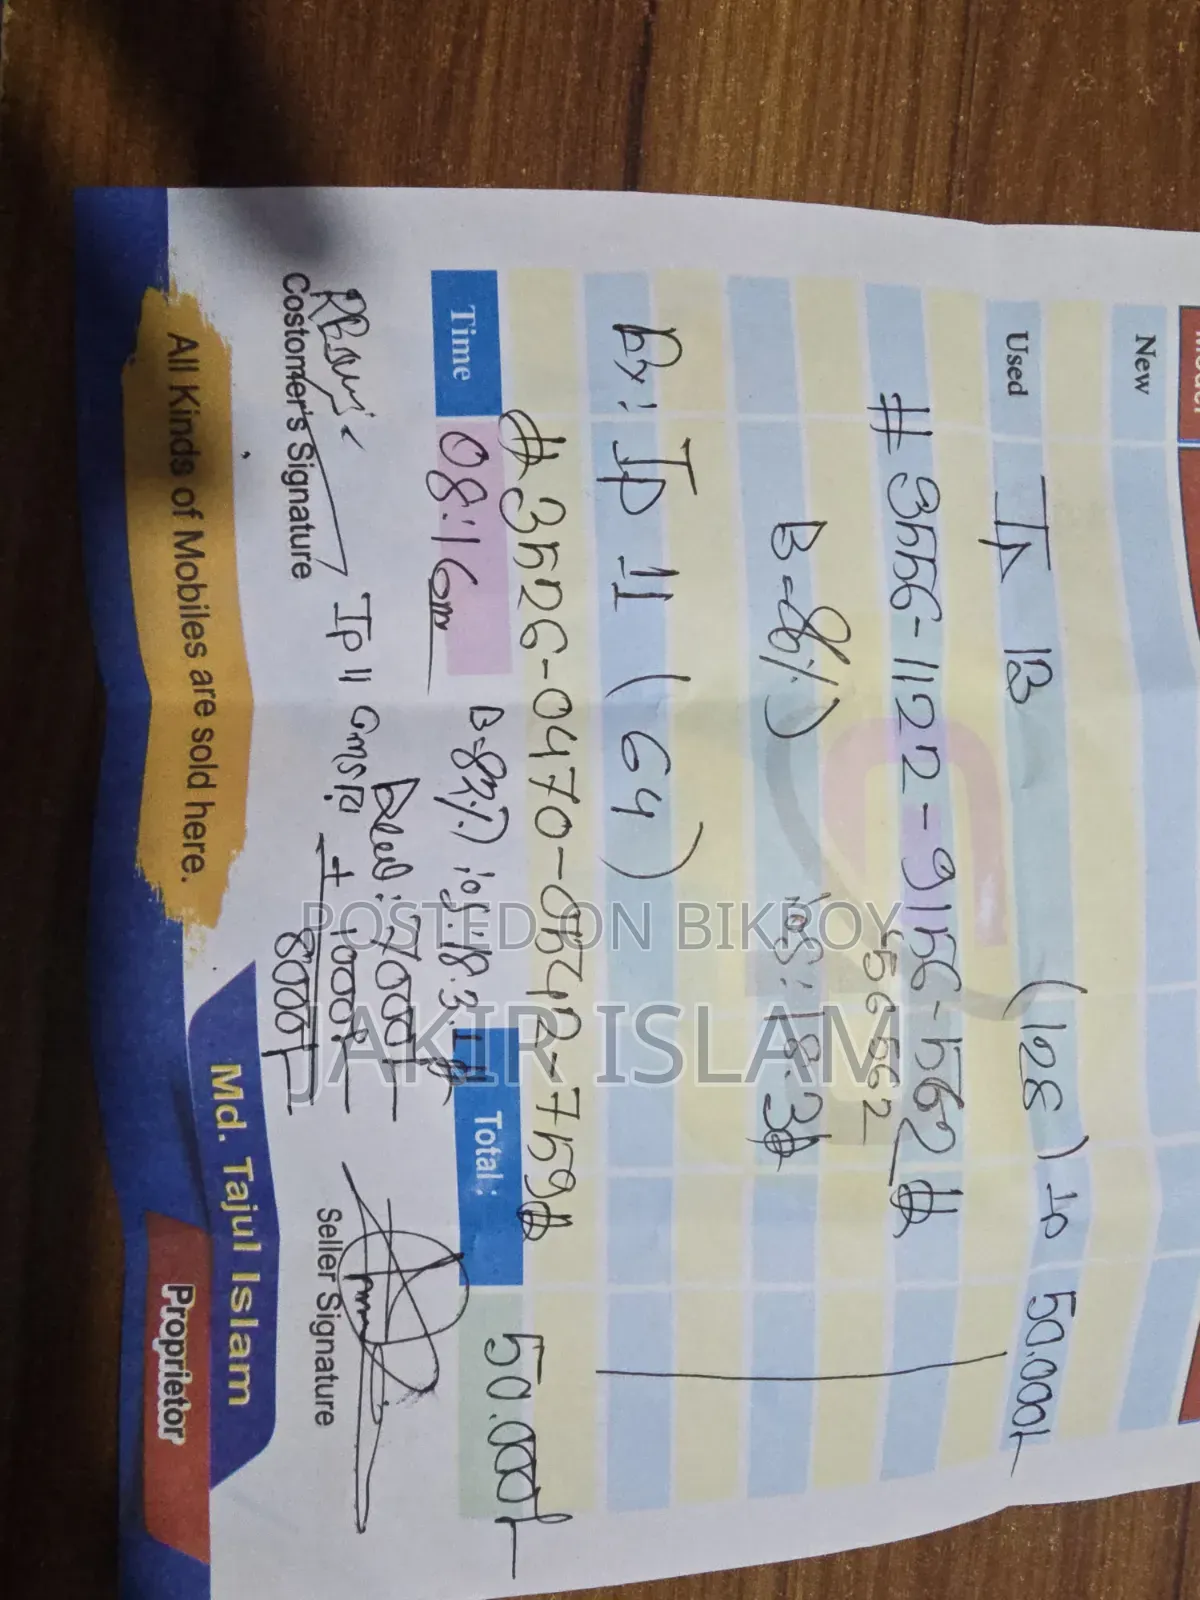 New
Used
IP 13 (128) IP 50.000/-
# 3556-1122-9156-5562 #
56 5562
B-86%) ios: 18.3 #
Ex: IP 11 (64)
# 3526-0470-0542-759 #
B-83%) ios: 18.3.1 #
Time 08:16 Pm
Total: 50.000/-
IP 11
7000/-
+ 1000/-
8000/-
Costomer's Signature
Seller Signature
All Kinds of Mobiles are sold here.
Md. Tajul Islam
Proprietor
POSTED ON BIKROY
JAKIR ISLAM